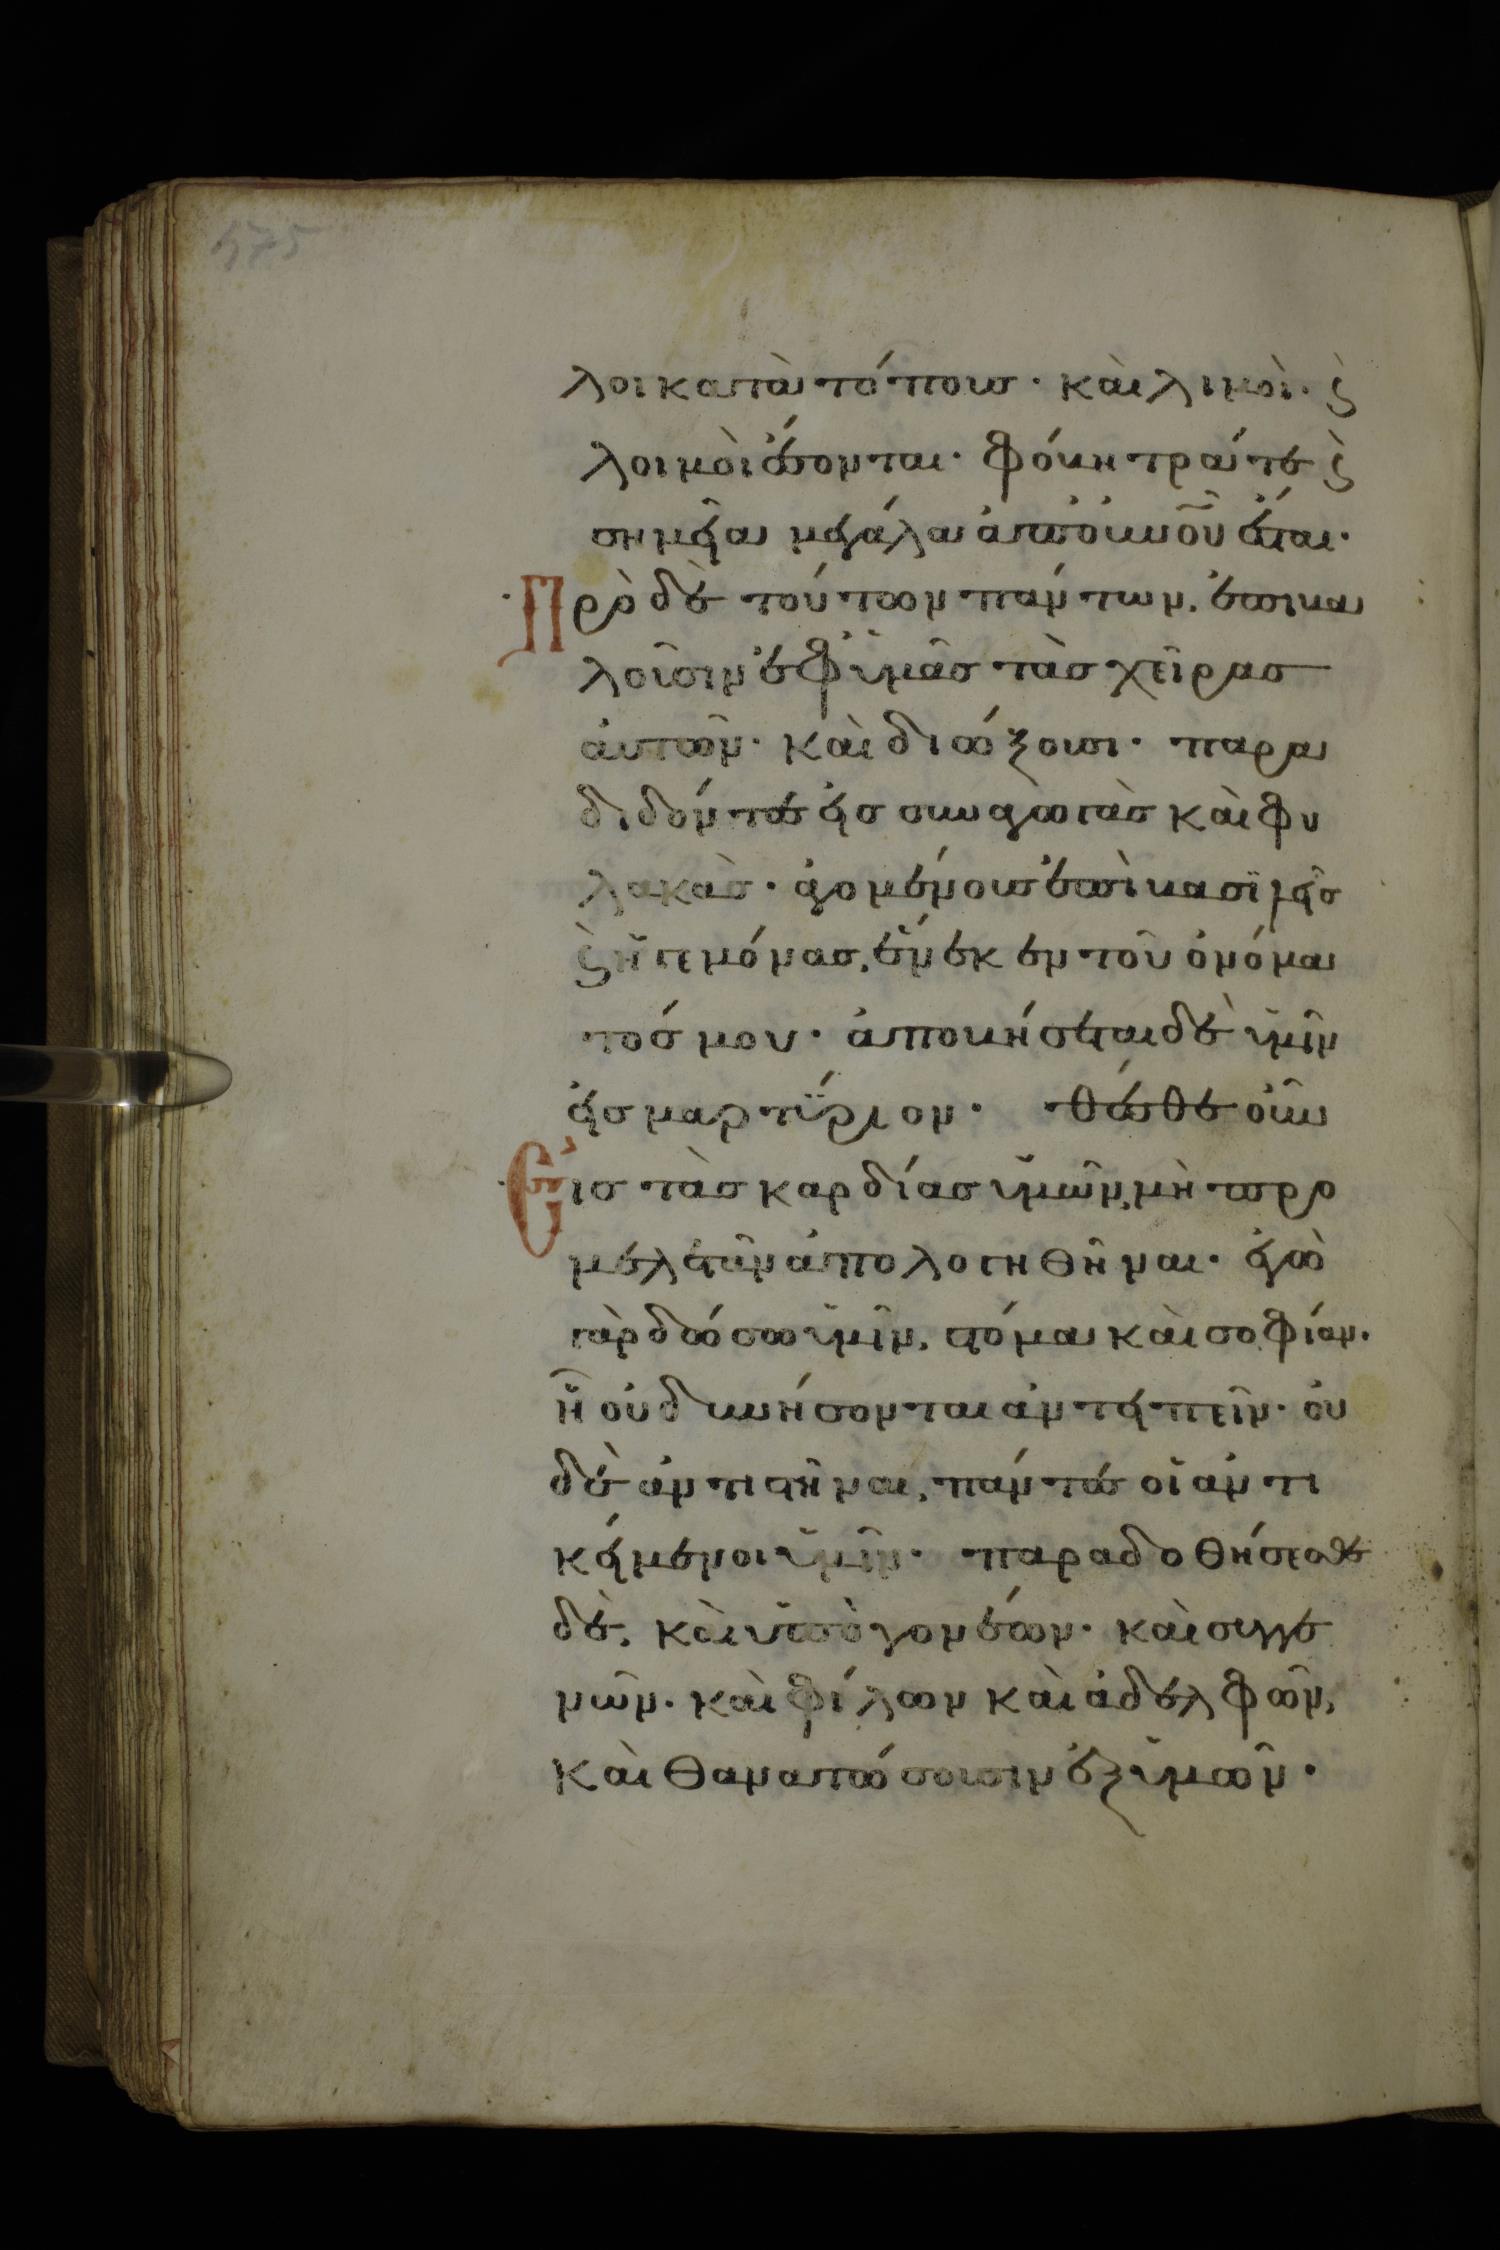 575
λοι κατὰ τόπους· καὶ λιμοὶ· ϛ̀
λοιμοὶ ἔσονται· φόβητρά τε ϛ̀
σημεῖα μεγάλα ἀπὸ οὐνοῦ ἔσται·
Πρὸ δὲ τούτων πάντων, ἐπιβα
λοῦσιν ἐφ' ὑμᾶς τὰς χεῖρας
αὐτῶν· καὶ διώξουσι· παρα
διδόντες εἰς συναγωγὰς καὶ φυ
λακὰς· ἀγομένους ἐπὶ βασιλεῖς
ϛ̀ ἡγεμόνας, ἕνεκεν τοῦ ὀνόμα
τός μου· ἀποβήσεται δὲ ὑμῖν
εἰς μαρτύριον· θέσθε οὖν
Εἰς τὰς καρδίας ὑμῶν, μὴ προ
μελετᾶν ἀπολογηθῆναι· ἐγὼ
γὰρ δώσω ὑμῖν, στόμα καὶ σοφίαν·
ᾗ οὐ δυνήσονται ἀντειπεῖν· οὐ
δὲ ἀντιστῆναι, πάντες οἱ ἀντι
κείμενοι ὑμῖν· παραδοθήσεσθε
δὲ, καὶ ὑπὸ γονέων· καὶ συγγε
νῶν· καὶ φίλων καὶ ἀδελφῶν,
καὶ θανατώσουσιν ἐξ ὑμῶν·